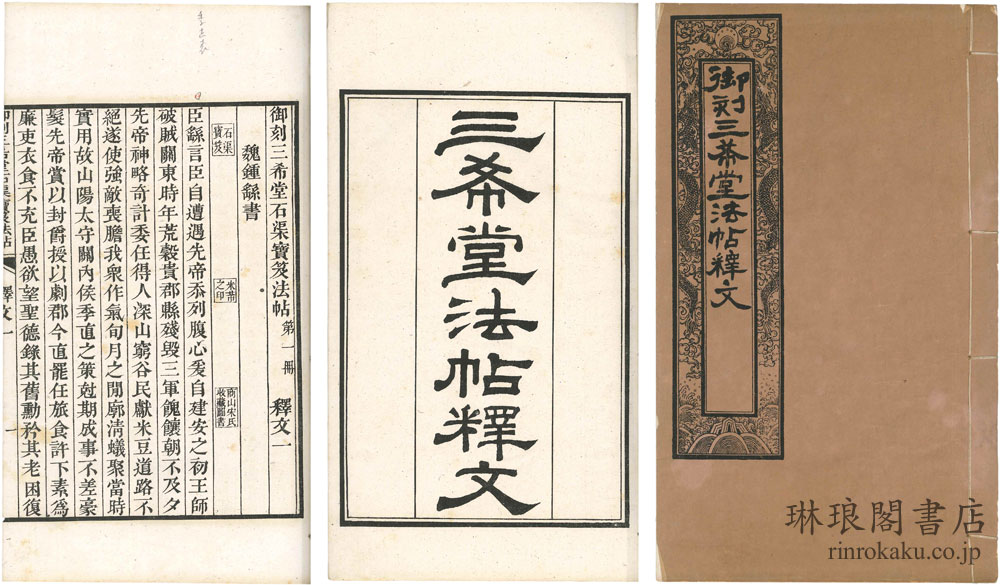 御刻三希堂法帖釋文
三希堂法帖釋文
季直表
御刻三希堂石渠寶笈法帖 第一冊 釋文一
魏鍾繇書
石渠寶笈
米芾之印
宋氏收藏圖書
臣繇言臣自遭遇先帝忝列腹心爰自建安之初王師
破賊關東時年荒穀貴郡縣殘毀三軍餽饟朝不及夕
先帝神略奇計委任得人深山窮谷民獻米豆道路不
絕遂使強敵喪膽我眾作氣旬月之閒廓清蟻聚當時
實用故山陽太守關內侯季直之策尅期成事不差豪
髮先帝賞以封爵授以劇郡今直罷任旅食許下素為
廉吏衣食不充臣愚欲望聖德錄其舊勳矜其老困復
御刻三希堂石渠寶笈法帖 釋文一 一
琳琅閣書店
rinrokaku.co.jp